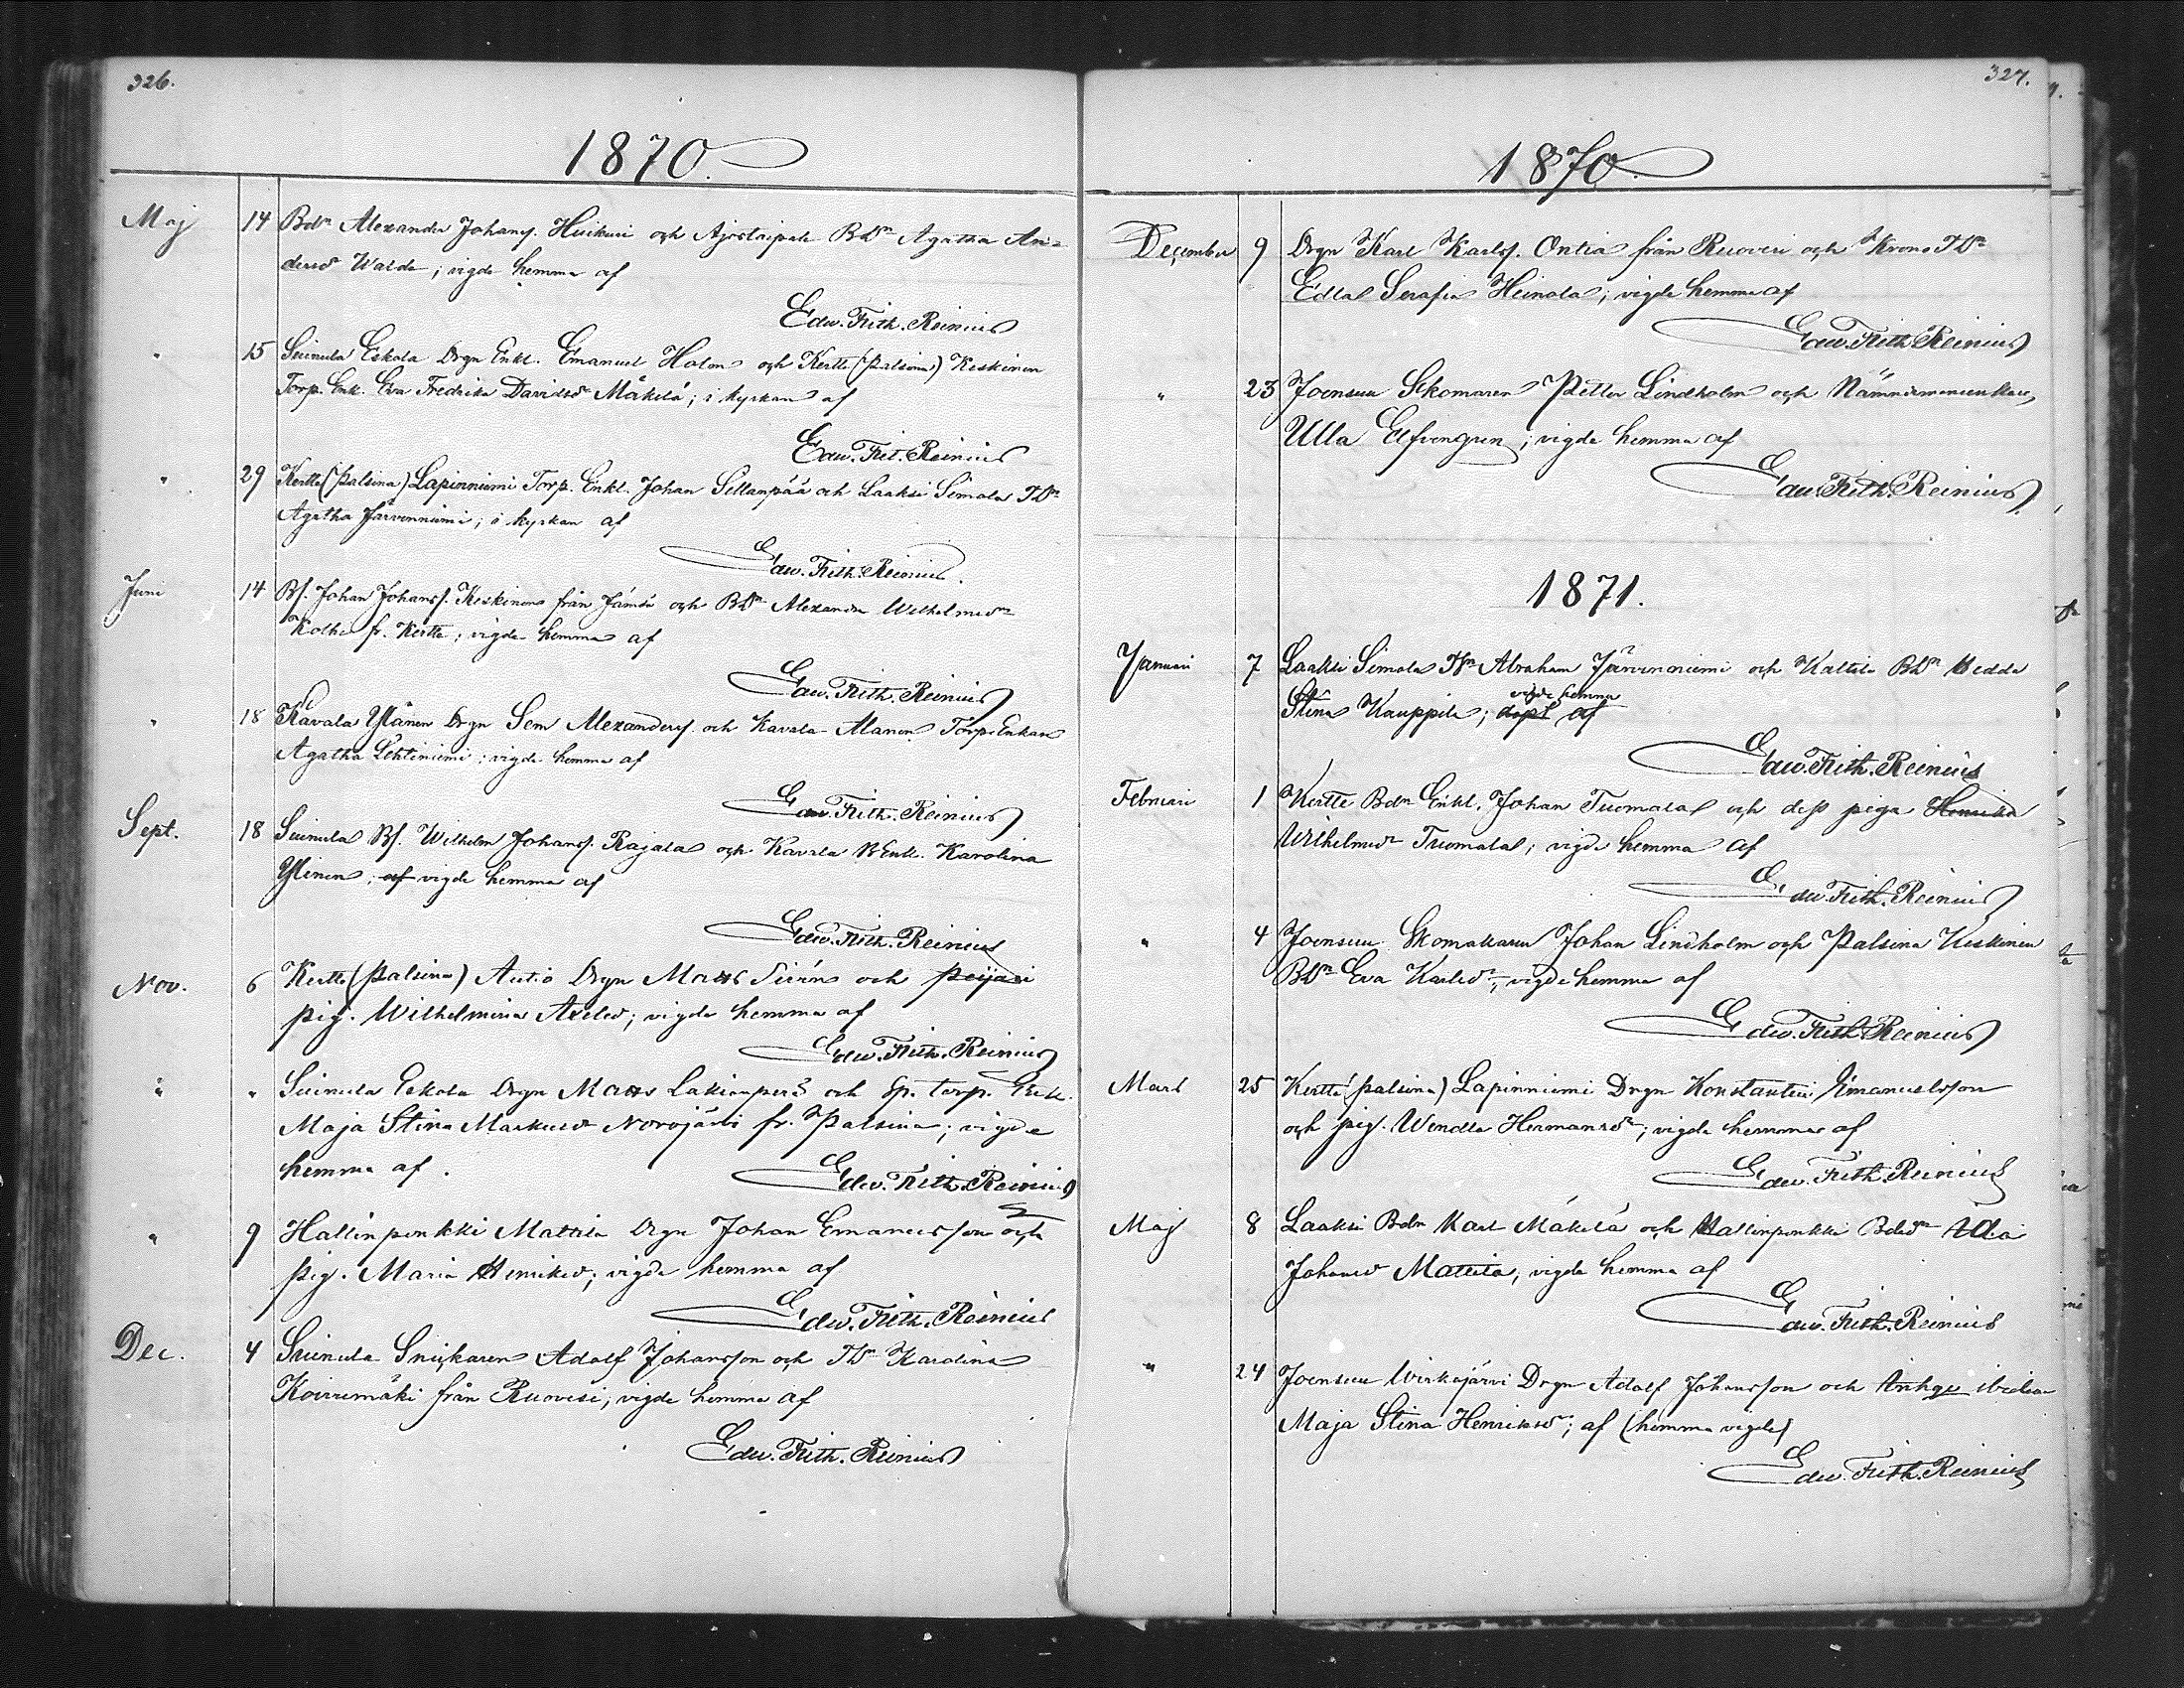 326.
1870.
Maj 14 Bdr Alexander Johans. Huikuri och Ajostaipale Bdr Agatha An=
dersdr Walda; vigde hemma af
Edw. Frith. Reinius
" 15 Suinula Eskola Drgn Enkl. Emanuel Holm och Kertte (Palsina) Keskinen
Torp. Enk. Eva Fredrika Davidsdr Mäkelä; i kyrkan af
Edw. Frit. Reinius
" 29 Kertte (Palsina) Lapinniemi Torp. Enkl. Johan Sellanpää och Laaksi Simola TDr
Agatha Järvenniemi; i kyrkan af
Edw. Frith. Reinius.
Juni 14 Bs. Johan Johans. Keskinen från Jämsä och BDr Alexandra Wilhelmsdr
Kolhi fr. Kertte; vigde hemma af
Edw. Frith. Reinius
" 18 Kavala Ylänen Drgn Sem Alexanders. och Kavala Alanen Torp. Enkan
Agatha Lehtiniemi; vigde hemma af
Edw. Frith. Reinius
Sept. 18 Suinula Bs. Wilhelm Johans. Rajala och Kavala B Enk. Karolina
Ylinen; af vigde hemma af
Edw. Frith. Reinius
Nov. 6 Kertte (Palsina) Autio Drgn Matts Sirén och
pig. Wilhelmina Axelsd; vigde hemma af
Edw. Frith. Reinius
" " Suinula Eskola Drgn Matts Lakianperä och Sp. torp. Enk.
Maja Stina Markusdr Norojärbi fr. Palsina; vigde
hemma af.
Edw. Frith. Reinius
" 9 Hallinpenkki Mattila Drgn Johan Emanuelsson och
pig. Maria Henriksd; vigde hemma af
Edw. Frith. Reinius
Dec. 4 Suinula Snickaren Adolf Johansson och TDr Karolina
Koivumäki från Ruovesi; vigde hemma af
Edw. Frith. Reinius
327.
1870.
December 9 Drgn Karl Karls. Ontia från Ruovesi och Krono TDr
Edla Serafia Heinola; vigde hemma af
Edw. Frith. Reinius
" 23 Joensuu Skomaren Petter Lindholm och Nämndemansenkan
Ulla Elfvengren; vigde hemma af
Edw. Frith. Reinius
1871.
Januari 7 Laaksi Simola Abraham Järvenniemi och Kaltila BDr Hedda
Stina Kauppila; döpt vigde hemma af
Edw. Frith. Reinius
Februari 1 Kertte Bdn Enkl. Johan Tuomala och dess piga Henrika
Wilhelmsdr Tuomala; vigde hemma af
Edw. Frith. Reinius
" 4 Joensuu Skomakaren Johan Lindholm och Palsina Keskinen
BDr Eva Karlsdr, vigde hemma af
Edw. Frith. Reinius
Mars 25 Kertte (Palsina) Lapinniemi Drgn Konstantin Emanuelsson
och pig. Wendla Hermansdr; vigde hemma af
Edw. Frith. Reinius
Maj 8 Laaksi Bdn Karl Mäkelä och Hallinpenkki Bdr Ida
Johansd Mattila; vigde hemma af
Edw. Frith. Reinius
" 24 Joensuu Wirkajärvi Drgn Adolf Johansson och
Maja Stina Henriksdr; af (hemma vigde)
Edw. Frith. Reinius